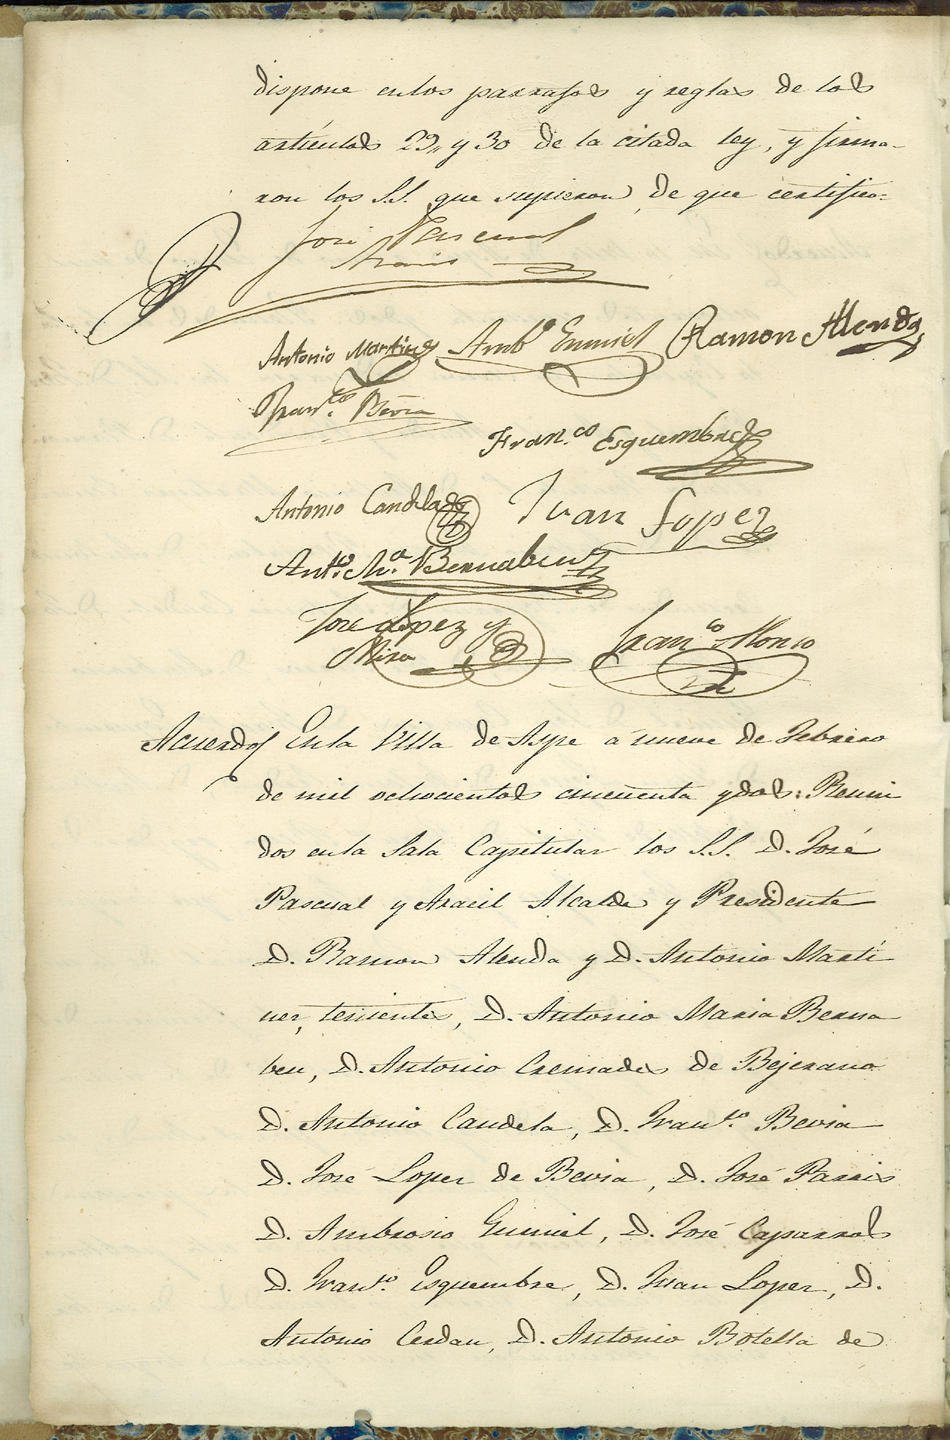 dispone en los parrafos y reglas de los
artículos 29,, y 30 de la citada ley, y firma-
ron los S.S. que supieron de que certifico=
José Pascual
Aracil
Antonio Martinez Amb.º Gumiel Ramon Alenda
Fran.co Bevia
Fran.co Esquembre
Antonio Candela Juan Lopez
Ant.º M.ª Bernabeu
José Lopez y
Mira Fran.co Alonso
Acuerdo En la Villa de Aspe a nueve de Febrero
de mil ochocientos cincuenta y dos: Reuni
dos en la Sala Capitular los S.S. D. José
Pascual y Aracil Alcalde y Presidente
D. Ramon Alenda y D. Antonio Martí
nez, tenientes, D. Antonio Maria Berna
beu, D. Antonio Cremades de Bejerano
D. Antonio Candela, D. Fran.co Bevia
D. José Lopez de Bevia, D. José Parris
D. Ambrosio Gumiel, D. José Caparros
D. Fran.co Esquembre, D. Juan Lopez, D.
Antonio Cerdan, D. Antonio Botella de